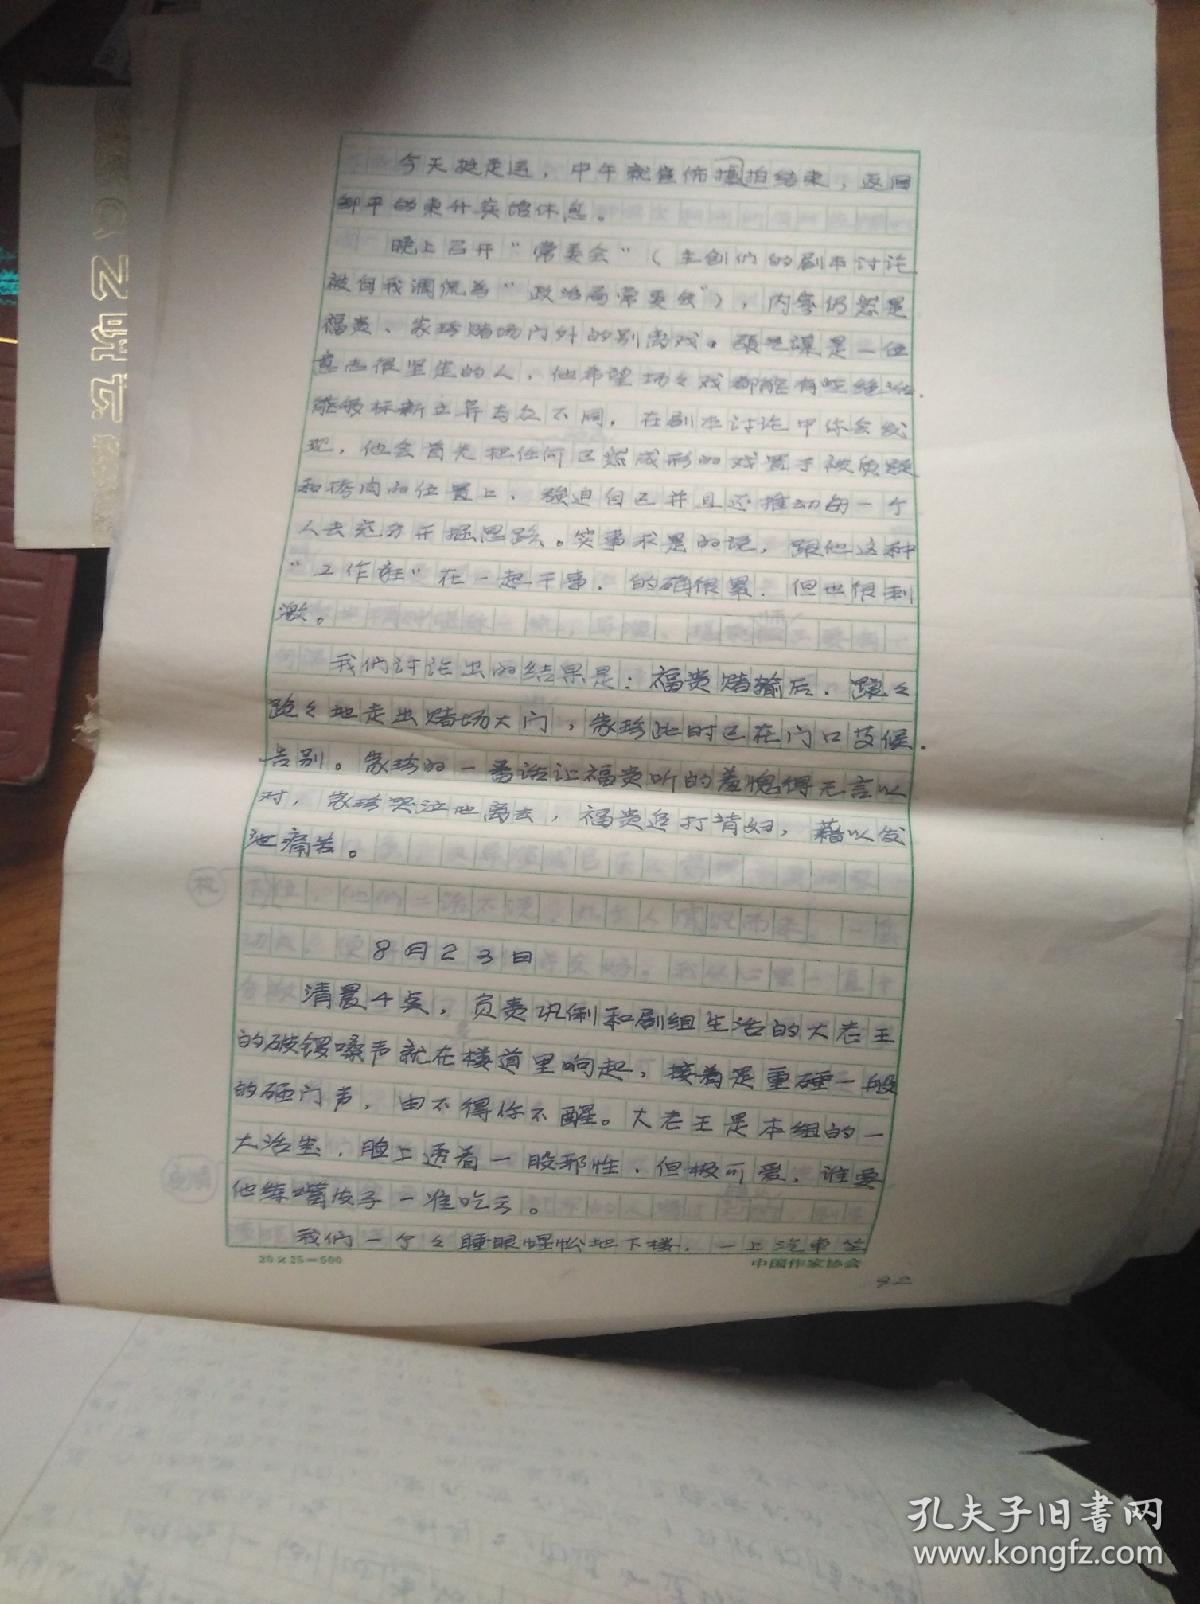 今天挺走运，中午就宣佈搶拍结束，返回
邹平的東升宾馆休息。
晚上召开“常委会”（主创们的剧本讨论
被自我调侃为“政治局常委会”），内容仍然是
福贵、家珍赌场门外的别离戏。张艺谋是一位
意志很坚定的人，他希望场々戏都能有些绝活，
能够标新立异与众不同，在剧本讨论中你会发
现，他会首先把任何已然成形的戏置于被质疑
和挑剔的位置上，强迫自己并且还推动每一个
人去充分开掘思路。实事求是的说，跟他这种
“工作狂”在一起干事，的确很累，但也很刺
激。
我们讨论出的结果是：福贵赌输后，踉々
跄々地走出赌场大门，家珍此时已在门口苃候，
告别。家珍的一番话让福贵听的羞愧得无言以
对，家珍哭泣地离去，福贵追打背妇，藉以发
泄痛苦。
8月23日
清晨4点，负责巩俐和剧组生活的大老王
的破锣嗓声就在楼道里响起，接着是重砸一般
的砸门声，由不得你不醒。大老王是本组的一
大活宝，脸上透着一股邪性，但极可爱，谁要
他练嘴皮子一准吃亏。
我们一个々睡眼惺忪地下楼，一上汽車坐
20×25=500
中国作家协会
92
孔夫子旧书网
www.kongfz.com